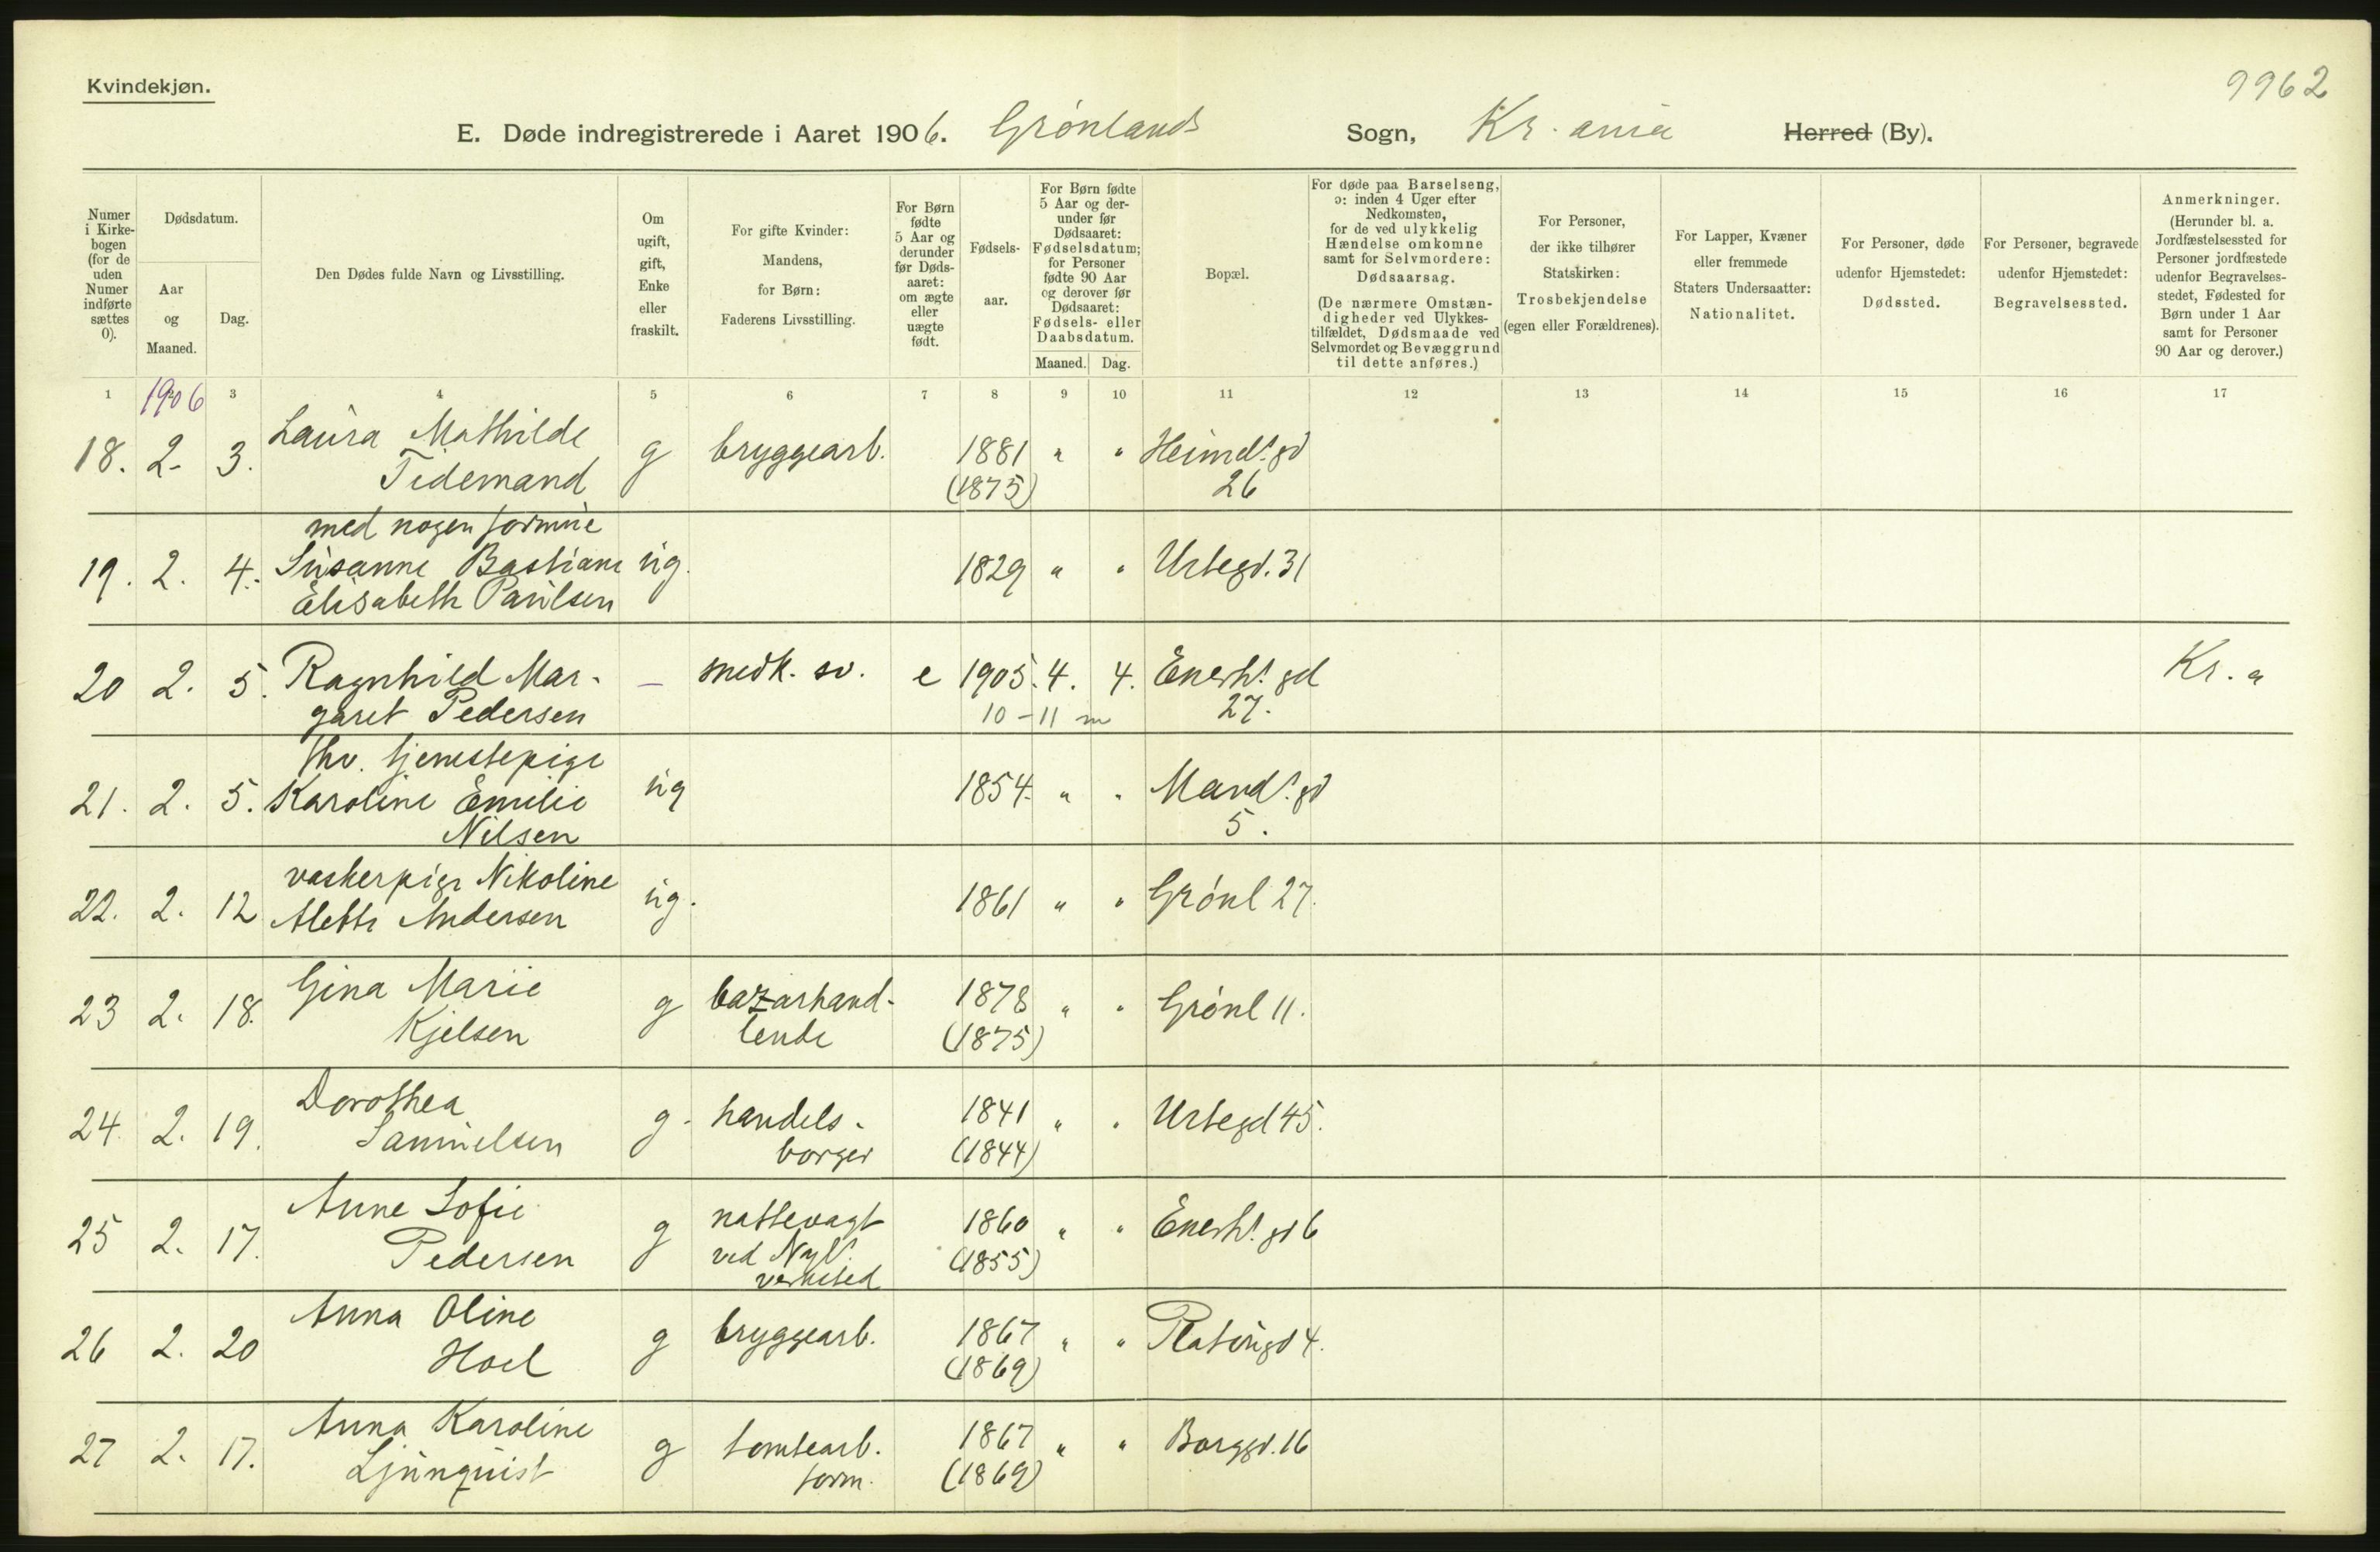 Kvindekjøn.
9962
E. Døde indregistrerede i Aaret 1906. Grønlands Sogn, Kr.ania Herred (By).
Numer i Kirkebogen (for de uden Numer indførte sættes 0).
Dødsdatum.
Aar og Maaned.
Dag.
Den Dødes fulde Navn og Livsstilling.
Om ugift, gift, Enke eller fraskilt.
For gifte Kvinder: Mandens, for Børn: Faderens Livsstilling.
For Børn fødte 5 Aar og derunder før Dødsaaret: om ægte eller uægte født.
Fødselsaar.
For Børn fødte 5 Aar og derunder før Dødsaaret: Fødselsdatum; for Personer fødte 90 Aar og derover før Dødsaaret: Fødsels- eller Daabsdatum.
Maaned. Dag.
Bopæl.
For døde paa Barselseng, ɔ: inden 4 Uger efter Nedkomsten, for de ved ulykkelig Hændelse omkomne samt for Selvmordere: Dødsaarsag.
(De nærmere Omstændigheder ved Ulykkestilfældet, Dødsmaade ved Selvmordet og Bevæggrund til dette anføres.)
For Personer, der ikke tilhører Statskirken: Trosbekjendelse (egen eller Forældrenes).
For Lapper, Kvæner eller fremmede Staters Undersaatter: Nationalitet.
For Personer, døde udenfor Hjemstedet: Dødssted.
For Personer, begravede udenfor Hjemstedet: Begravelsessted.
Anmerkninger.
(Herunder bl. a. Jordfæstelsessted for Personer jordfæstede udenfor Begravelsesstedet, Fødested for Børn under 1 Aar samt for Personer 90 Aar og derover.)
1 1906 3 4 5 6 7 8 9 10 11 12 13 14 15 16 17
18. 2- 3. Laura Mathilde g bryggearb. 1881 " " Heimdls.gd
Tidemand (1875) 26
med nogen formue
19. 2. 4. Susanne Bastiane ug. 1829 " " Urtegd. 31
Elisabeth Paulsen
20 2. 5. Ragnhild Mar- — snedk. sv. e 1905. 4. 4. Enerh. gd Kr. a
garet Pedersen 10-11 m 27.
fhv. tjenestepige
21. 2. 5. Karoline Emilie ug 1854. " " Mands. gd
Nilsen 5.
vaskerpige Nikoline
22. 2. 12 Alette Andersen ug. 1861 " " Grønl 27.
23 2. 18. Gina Marie g bazarhand- 1878 " " Grønl 11.
Kjelsen lende (1875)
24 2. 19. Dorothea g. handels- 1841 " " Urtegd 45.
Samuelsen borger (1844)
25 2. 17. Anne Sofie g nattevagt 1860 " " Enerh. gd 6
Pedersen ved Nyl. (1855)
verksted
26 2. 20 Anna Oline g bryggearb. 1867 " " Platougd 4.
Hoel (1869)
27 2. 17. Anna Karoline g tomtearb. 1867 " " Borggd. 16
Ljunquist form. (1869)